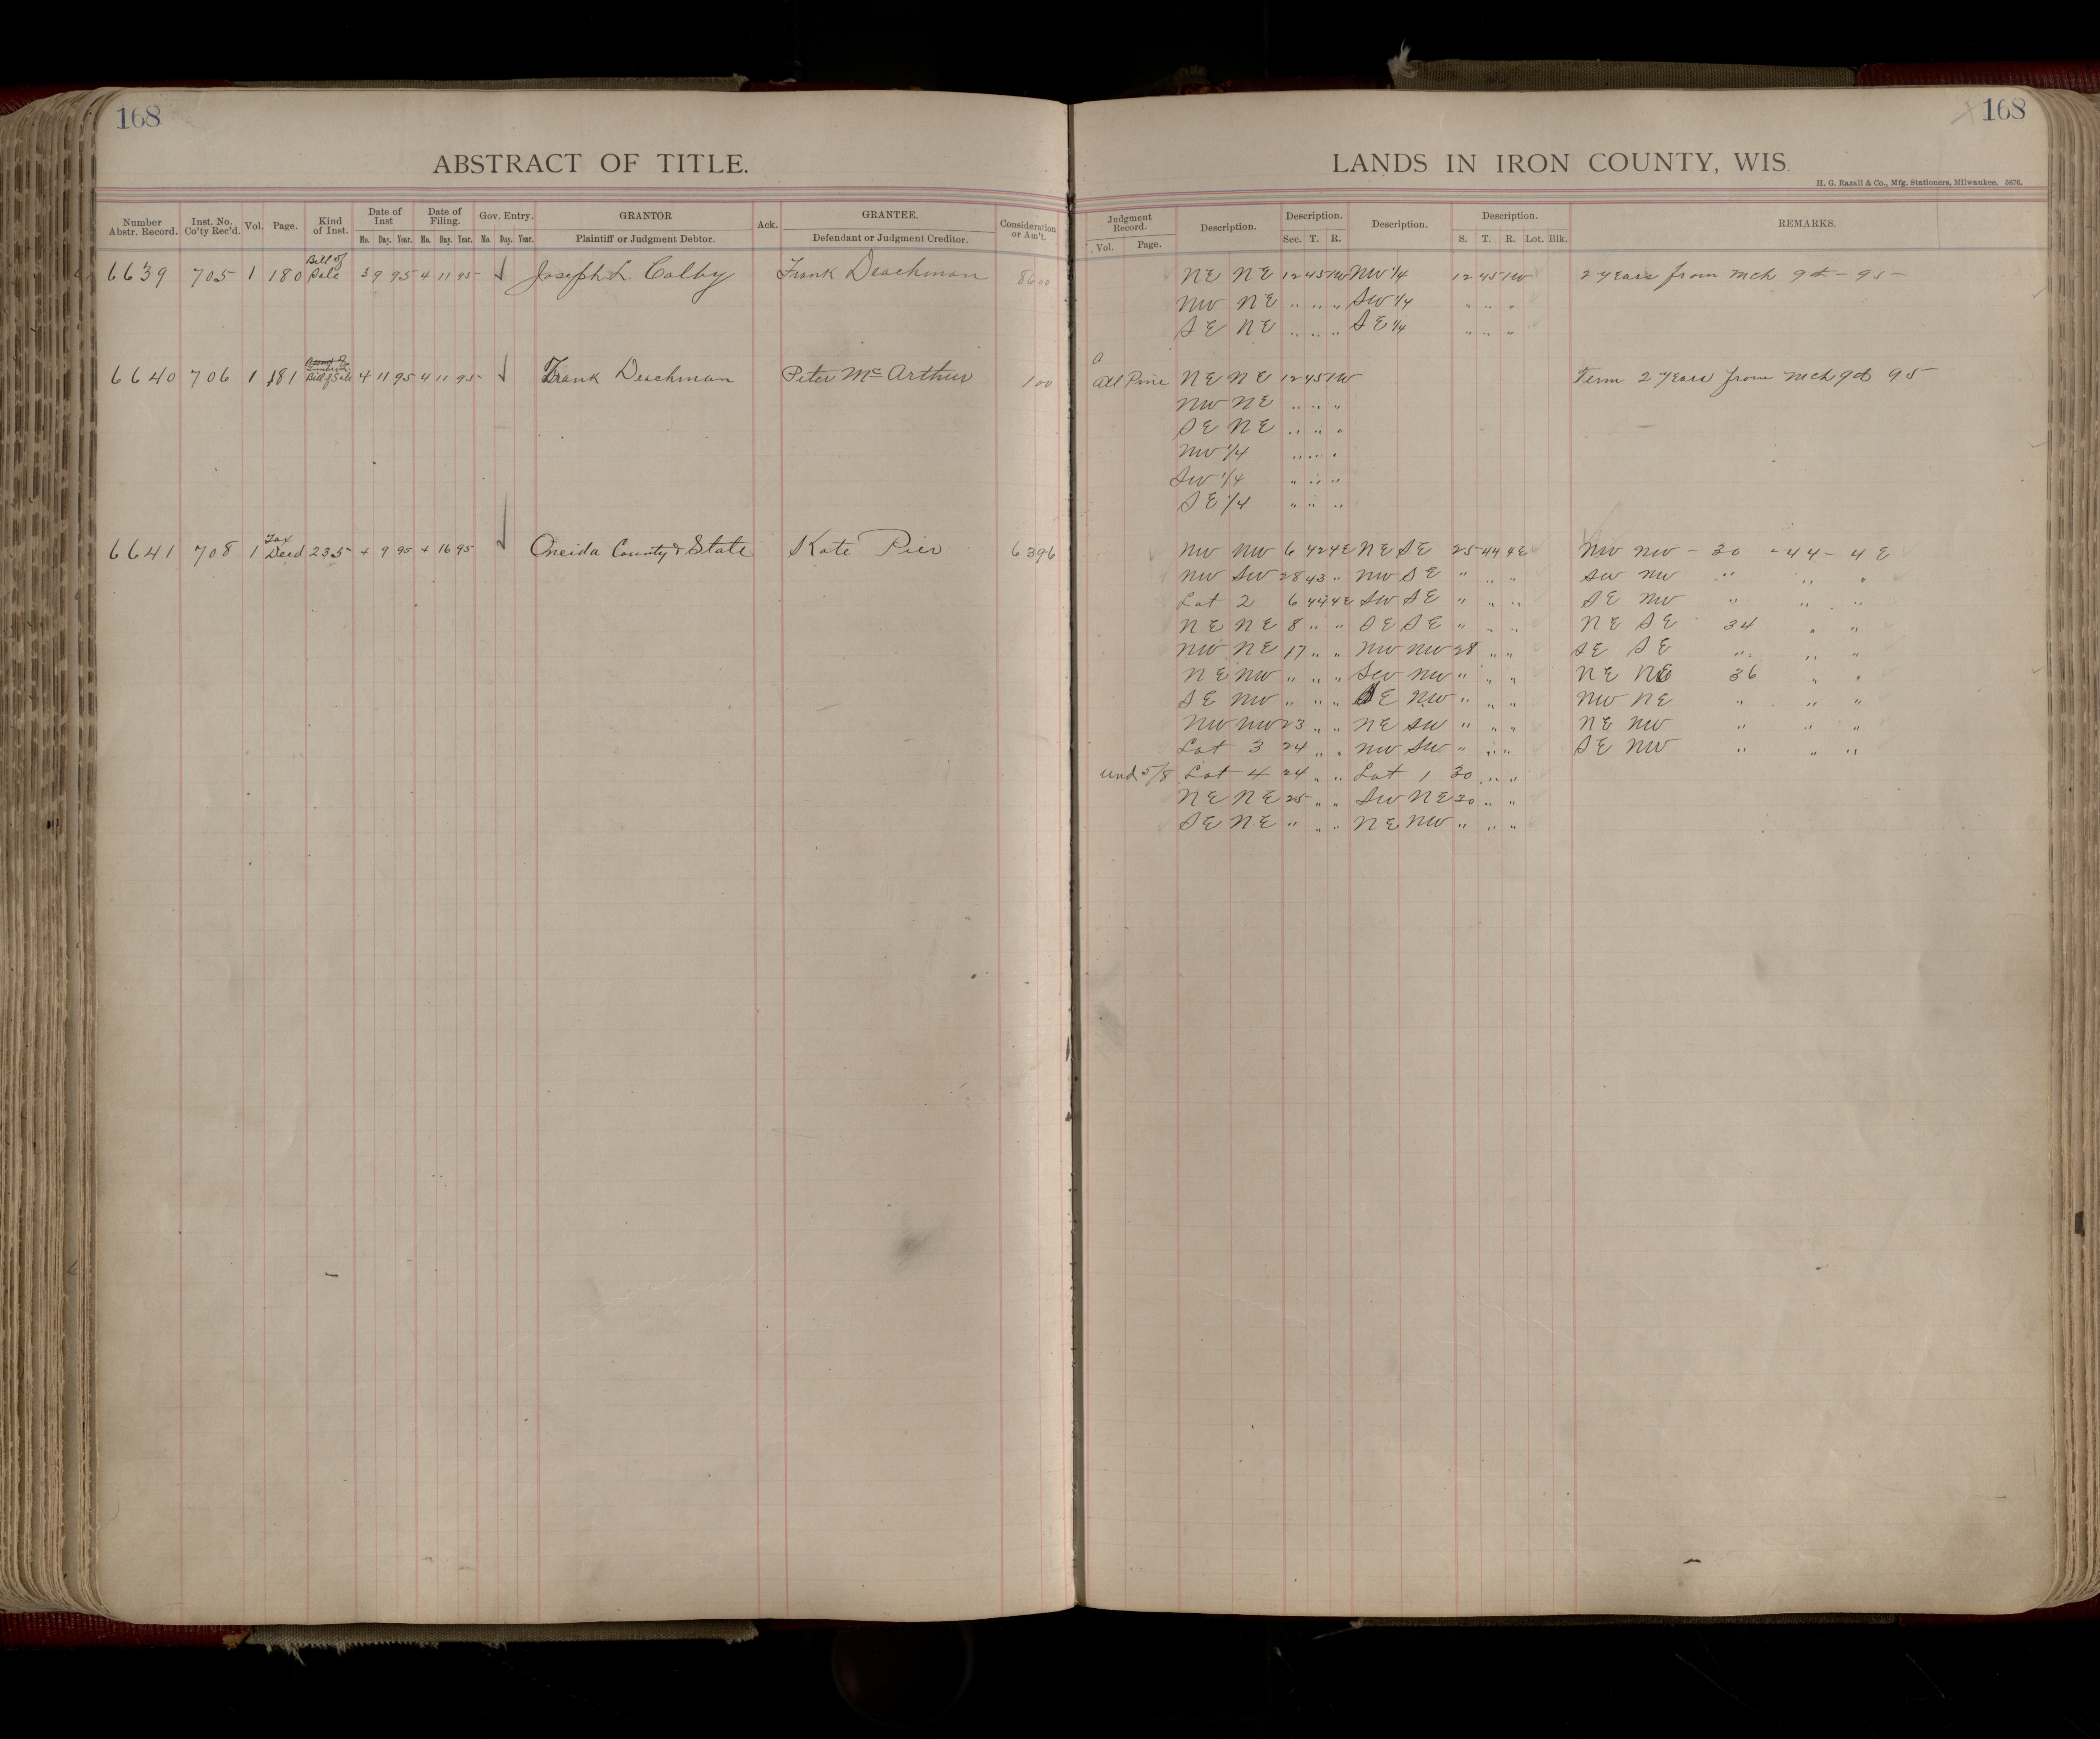 168
ABSTRACT OF TITLE.
Number Abstr. Record. Inst. No. Co'ty Rec'd. Vol. Page. Kind of Inst. Date of Inst Mo. Day. Year. Date of Filing. Mo. Day. Year. Gov. Entry. Mo. Day. Year. GRANTOR Plaintiff or Judgment Debtor. Ack. GRANTEE. Defendant or Judgment Creditor. Consideration or Am't.
6639 705 1 180 Bill of Sale 3 9 95 4 11 95 Joseph L. Colby Frank Deachman 8600
6640 706 1 181 Bill of Sale 4 11 95 4 11 95 Frank Deachman Peter Mc Arthur 100
6641 708 1 Tax Deed 235 4 9 95 4 16 95 Oneida County & State Kate Pier 6396
168
LANDS IN IRON COUNTY, WIS.
H. G. Razall & Co., Mfg. Stationers, Milwaukee. 5876.
Judgment Record. Vol. Page. Description. Description. Sec. T. R. Description. Description. S. T. R. Lot. Blk. REMARKS.
NE NE 12 45 1W NW 1/4 12 45 1W 2 years from Mch 9th - 95
NW NE " " " SW 1/4 " " "
SE NE " " " SE 1/4 " " "
a
All Pine NE NE 12 45 1W Term 2 years from Mch 9th 95
NW NE " " "
SE NE " " "
NW 1/4 " " "
SW 1/4 " " "
SE 1/4 " " "
NW NW 6 42 4E NE SE 25 44 4E NW NW - 30 - 44 - 4 E
NW SW 28 43 " NW SE " " " SW NW " " "
Lot 2 6 44 4E SW SE " " " SE NW " " "
NE NE 8 " " SE SE " " " NE SE 34 " "
NW NE 17 " " NW NW 28 " " SE SE " " "
NE NW " " " SW NW " " " NE NE 36 " "
SE NW " " " SE NW " " " NW NE " " "
NW NW 23 " " NE SW " " " NE NW " " "
Lot 3 24 " " NW SW " " " SE NW " " "
und 5/8 Lot 4 24 " " Lot 1 30 " "
NE NE 25 " " SW NE 30 " "
SE NE " " " NE NW " " "